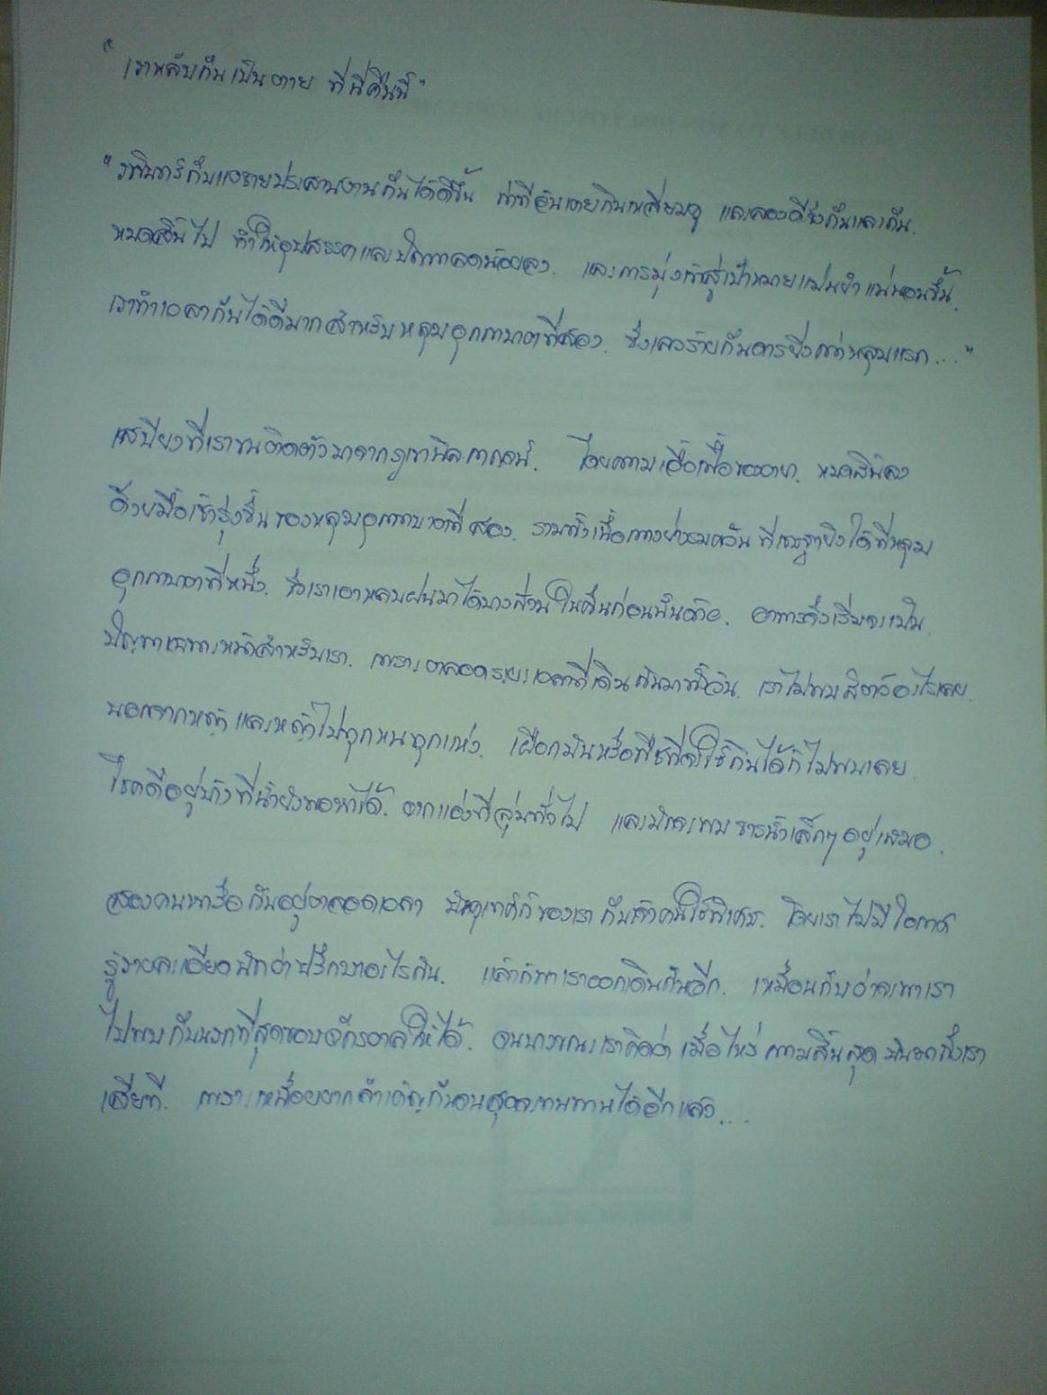 "เราหลับกันเป็นตาย ที่นี่คืนนี้"
"รพินทร์กับแงซายประสานงานกันได้ดีขึ้น ท่าทีอันเคยกินเหลี่ยมคู และลองดีซึ่งกันและกัน.
หมดสิ้นไป ทำให้อุปสรรคและปัญหาลดน้อยลง. และการมุ่งเข้าสู่เป้าหมายแม่นยำแน่นอนขึ้น.
เราทำเวลากันได้ดีมากสำหรับหลุมอุกกาบาตที่สอง. ซึ่งเลวร้ายกันดารยิ่งกว่าหลุมแรก..."
เสบียงที่เราขนติดตัวมาจากภูเขานิลกาฬนั้น. โดยความเอื้อเฟื้อของวายา. หมดสิ้นลง
ด้วยมื้อเช้ารุ่งขึ้นของหลุมอุกกาบาตที่สอง. รวมทั้งเนื้อกวางย่างรมควัน ที่เชษฐายิงได้ที่หลุม
อุกกาบาตที่หนึ่ง. ซึ่งเราเอาหลบฝนมาได้บางส่วนในคืนก่อนนั้นด้วย. อาหารจึงเริ่มจะเป็น
ปัญหาเฉพาะหน้าสำหรับเรา. เพราะตลอดระยะเวลาที่เดินกันมาทั้งวัน. เราไม่พบสัตว์อะไรเลย.
นอกจากหญ้าและหญ้าไปทุกหนทุกแห่ง. เผือกมันหรือพืชที่จะใช้กินได้ก็ไม่พบเลย.
โชคดีอยู่บ้างที่น้ำยังพอหาได้. จากแอ่งที่ลุ่มทั่วไป และมักจะพบธารน้ำเล็กๆอยู่เสมอ.
สองคนหารือกันอยู่ตลอดเวลา มัคคุเทศก์ของเรากับเจ้าคนใช้พิเศษ. โดยเราไม่มีโอกาส
รู้รายละเอียดนักว่าปรึกษาอะไรกัน. แล้วก็พาเราออกเดินกันอีก. เหมือนกับว่าจะพาเรา
ไปพบกับนรกที่สุดขอบจักรวาลให้ได้. จนบางขณะเราคิดว่าเมื่อไหร่ความสิ้นสุดมันมาถึงเรา
เสียที. เพราะเหนื่อยยากลำเค็ญกันจนสุดจะทนทานได้อีกแล้ว...